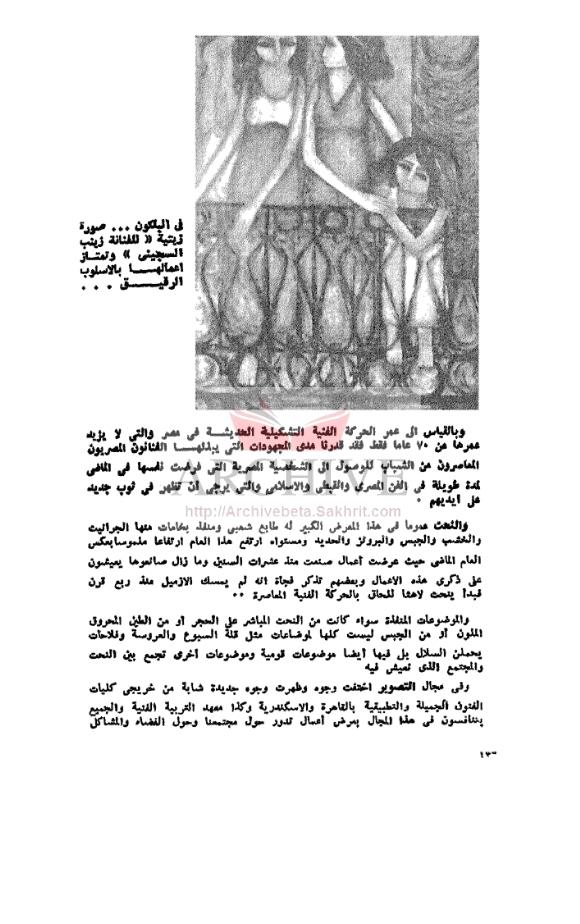 فى البلكون ... صورة
زيتية « للفنانة زينب
السجينى » وتمتاز
اعمالهـــا بالاسلوب
الرقيـــق . . .
وبالقياس الى عمر الحركة الفنية التشكيلية الحديثـــة فى مصر والتى لا يزيد
عمرها عن ٧٠ عاما فقط فقد قدرنا مدى المجهودات التى يبذلهـــا الفنانون المصريون
المعاصرون من الشباب للوصول الى الشخصية المصرية التى فرضت نفسها فى الماضى
لمدة طويلة فى الفن المصرى والقبطى والاسلامى والتى يرجى أن تظهر فى ثوب جديد
على أيديهم .
ARCHIVE
http://Archivebeta.Sakhrit.com
والنحت عموما فى هذا المعرض الكبير له طابع شعبى ومنفذ بخامات منها الجرانيت
والخشب والجبس والبرونز والحديد ومستواه ارتفع هذا العام ارتفاعا ملموسا بعكس
العام الماضى حيث عرضت أعمال صنعت منذ عشرات السنين وما زال صانعوها يعيشون
على ذكرى هذه الاعمال وبعضهم تذكر فجأة انه لم يمسك الازميل منذ ربع قرن
فبدأ ينحت لاهثا للحاق بالحركة الفنية المعاصرة ..
والموضوعات المنفذة سواء كانت من النحت المباشر على الحجر أو من الطين المحروق
الملون أو من الجبس ليست كلها لموضاعات مثل قلة السبوع والعروسة وفلاحات
يحملن السلال بل فيها أيضا موضوعات قومية وموضوعات أخرى تجمع بين النحت
والمجتمع الذى نعيش فيه
وفى مجال التصوير اختفت وجوه وظهرت وجوه جديدة شابة من خريجى كليات
الفنون الجميلة والتطبيقية بالقاهرة والاسكندرية وكذا معهد التربية الفنية والجميع
يتنافسون فى هذا المجال بعرض أعمال تدور حول مجتمعنا وحول الفضاء والمشاكل
١٣٦